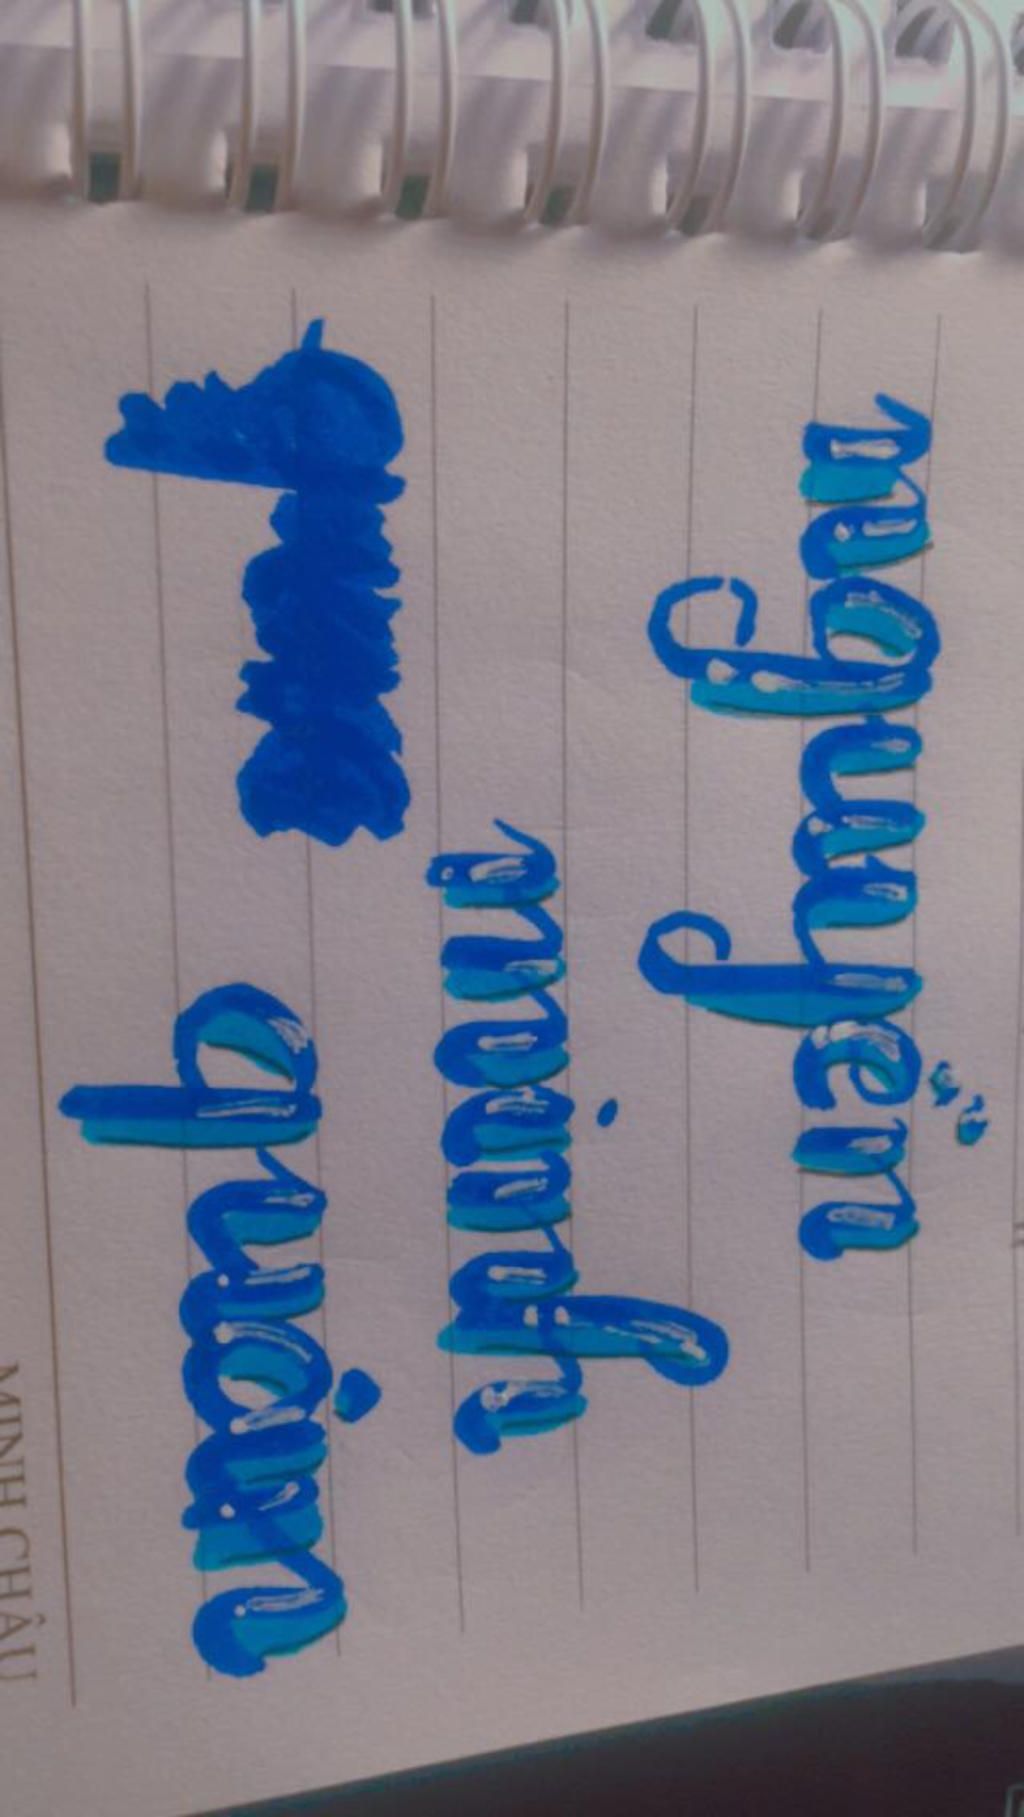 nguyễn
minh
quân
MINH CHÂU